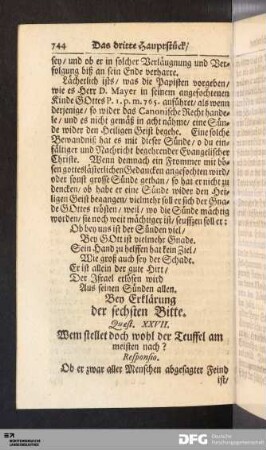 744 Das dritte Hauptstück/
sey/ und ob er in solcher Verläugnung und Ver-
folgung biß an sein Ende verharre.
Lächerlich ists/ was die Papisten vorgeben/
wie es Herr D. Mayer in seinem angefochtenen
Kinde GOttes P. 1. p. m. 765. anführet/ als wenn
derjenige/ so wider das Canonische Recht handle
und es nicht gemäß in acht nähme/ eine Sün-
de wider den Heiligen Geist begehe. Eine solche
Bewandniß hat es mit dieser Sünde/ o du ein-
fältiger und Nachricht begehrender Evangelischer
Christe. Wenn demnach ein Frommer mit bö-
sen gotteslästerlichen Gedancken angefochten wird/
oder sonst grosse Sünde gethan/ so hat er nicht zu
dencken/ ob habe er eine Sünde wider den Hei-
ligen Geist begangen/ vielmehr soll er sich der Gna-
de GOttes trösten/ weil/ wo die Sünde mächtig
worden/ sie noch weit mächtiger ist/ seuffzen soll er:
Ob bey uns ist der Sünden viel/
Bey GOtt ist vielmehr Gnade.
Sein Hand zu helffen hat kein Ziel/
Wie groß auch sey der Schade.
Er ist allein der gute Hirt/
Der Israel erlösen wird
Aus seinen Sünden allen.
Bey Erklärung
der sechsten Bitte.
Quæst. XXVII.
Wem stellet doch wohl der Teuffel am
meisten nach?
Responsio.
Ob er zwar aller Menschen abgesagter Feind
ist/
DFG